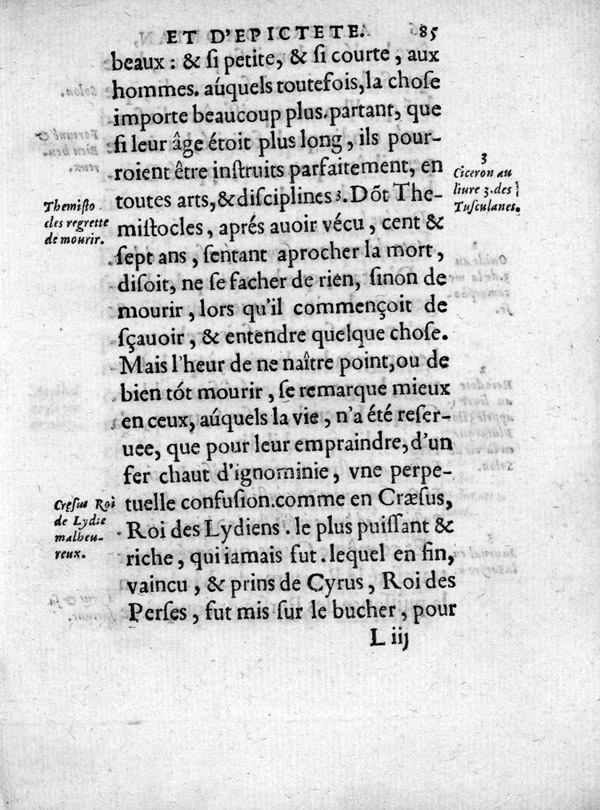 ET D'EPICTETE. 85
beaux : & ſi petite, & ſi courte, aux
hommes. aúquels toutefois, la choſe
importe beaucoup plus. partant, que
ſi leur âge étoit plus long, ils pour-
roient être inſtruits parfaitement, en
toutes arts, & diſciplines 3. Dõt The-
miſtocles, aprés auoir vécu, cent &
ſept ans, ſentant aprocher la mort,
diſoit, ne ſe facher de rien, ſinon de
mourir, lors qu'il commençoit de
ſçauoir, & entendre quelque choſe.
Mais l'heur de ne naître point, ou de
bien tót mourir, ſe remarque mieux
en ceux, aúquels la vie, n'a été reſer-
uee, que pour leur empraindre, d'un
fer chaut d'ignominie, vne perpe-
tuelle confuſion. comme en Cræſus,
Roi des Lydiens. le plus puiſſant &
riche, qui iamais fut. lequel en fin,
vaincu, & prins de Cyrus, Roi des
Perſes, fut mis ſur le bucher, pour
L iij
3
Ciceron au
liure 3. des
Tuſculanes.
Themiſto
cles regrette
de mourir.
Creſus Roi
de Lydie
malheu-
reux.